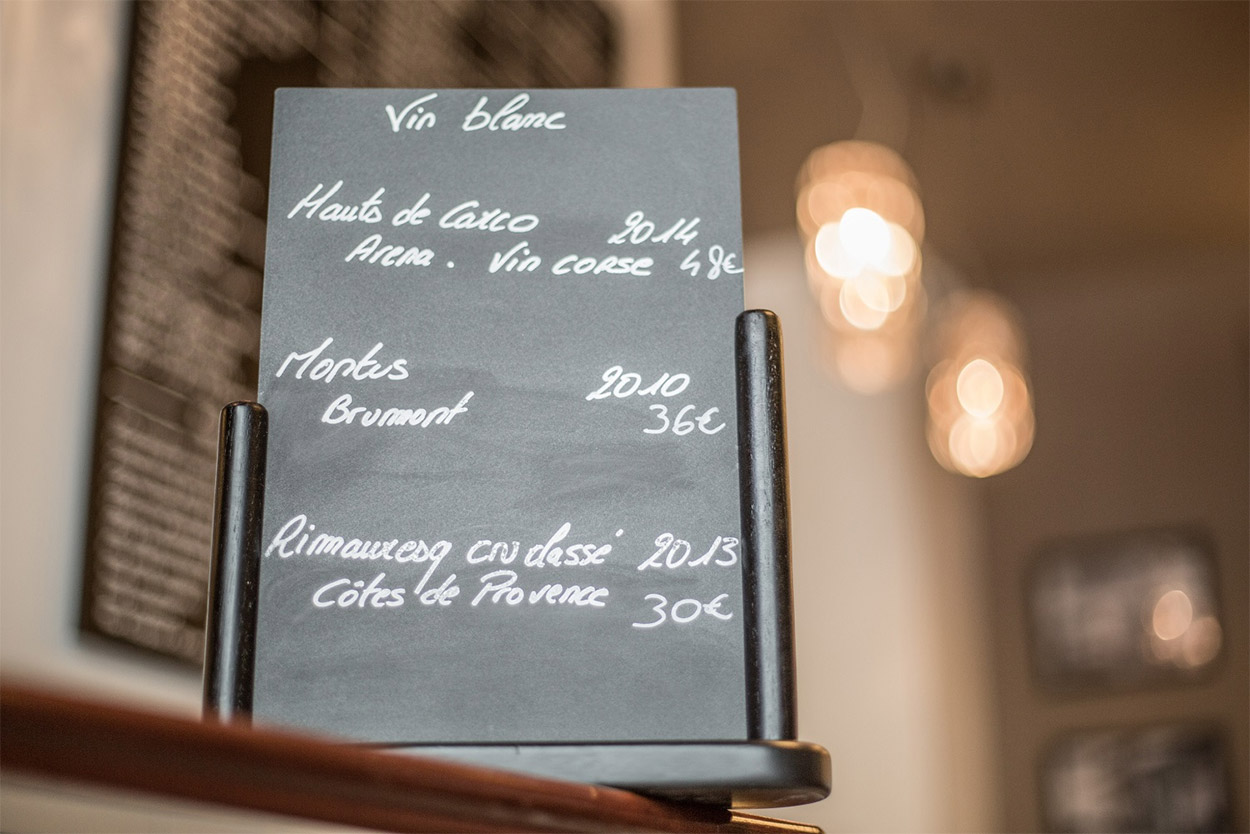 Vin blanc
Hauts de Carco 2014
Arena. Vin corse 48€
Montus 2010
Brumont 36€
Rimauresq cru classé 2013
Côtes de Provence 30€